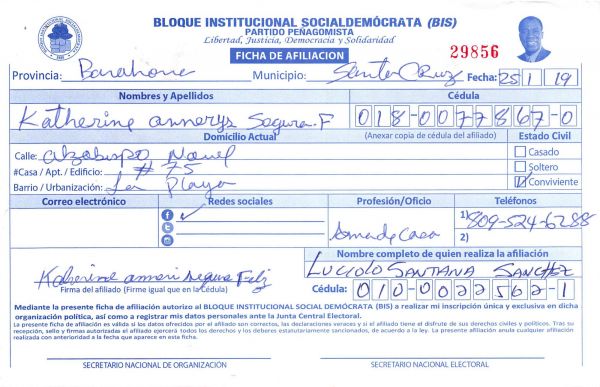 BLOQUE INSTITUCIONAL SOCIALDEMÓCRATA (BIS)
PARTIDO PEÑAGOMISTA
Libertad, Justicia, Democracia y Solidaridad
FICHA DE AFILIACION
29856
Provincia: Barahona Municipio: Santa Cruz Fecha: 25 1 19
Nombres y Apellidos Cédula
Katherine annerys Segura F 018-0077867-0
Domicilio Actual (Anexar copia de cédula del afiliado) Estado Civil
Calle: Nouel
#Casa / Apt. / Edificio: # 75
Barrio / Urbanización: La Playa
Casado
Soltero
Conviviente
Correo electrónico Redes sociales Profesión/Oficio Teléfonos
Ama de Casa
1) 809-524-6288
2)
Nombre completo de quien realiza la afiliación
LUCIOLO SANTANA SANCHEZ
Katherine Segura Feliz
Firma del afiliado (Firme igual que en la Cédula)
Cédula: 010-0022562-1
Mediante la presente ficha de afiliación autorizo al BLOQUE INSTITUCIONAL SOCIAL DEMÓCRATA (BIS) a realizar mi inscripción única y exclusiva en dicha
organización política, así como a registrar mis datos personales ante la Junta Central Electoral.
La presente ficha de afiliación es válida si los datos ofrecidos por el afiliado son correctos, las declaraciones veraces y si el afiliado tiene el disfrute de sus derechos civiles y políticos. Tras su
recepción, sello y firmas autorizadas el afiliado ejercerá todos los derechos y los deberes estatutariamente sancionados, de acuerdo a la ley. La presente afiliación anula cualquier afiliación
realizada con anterioridad a la fecha que aparece en esta ficha.
SECRETARIO NACIONAL DE ORGANIZACIÓN SECRETARIO NACIONAL ELECTORAL